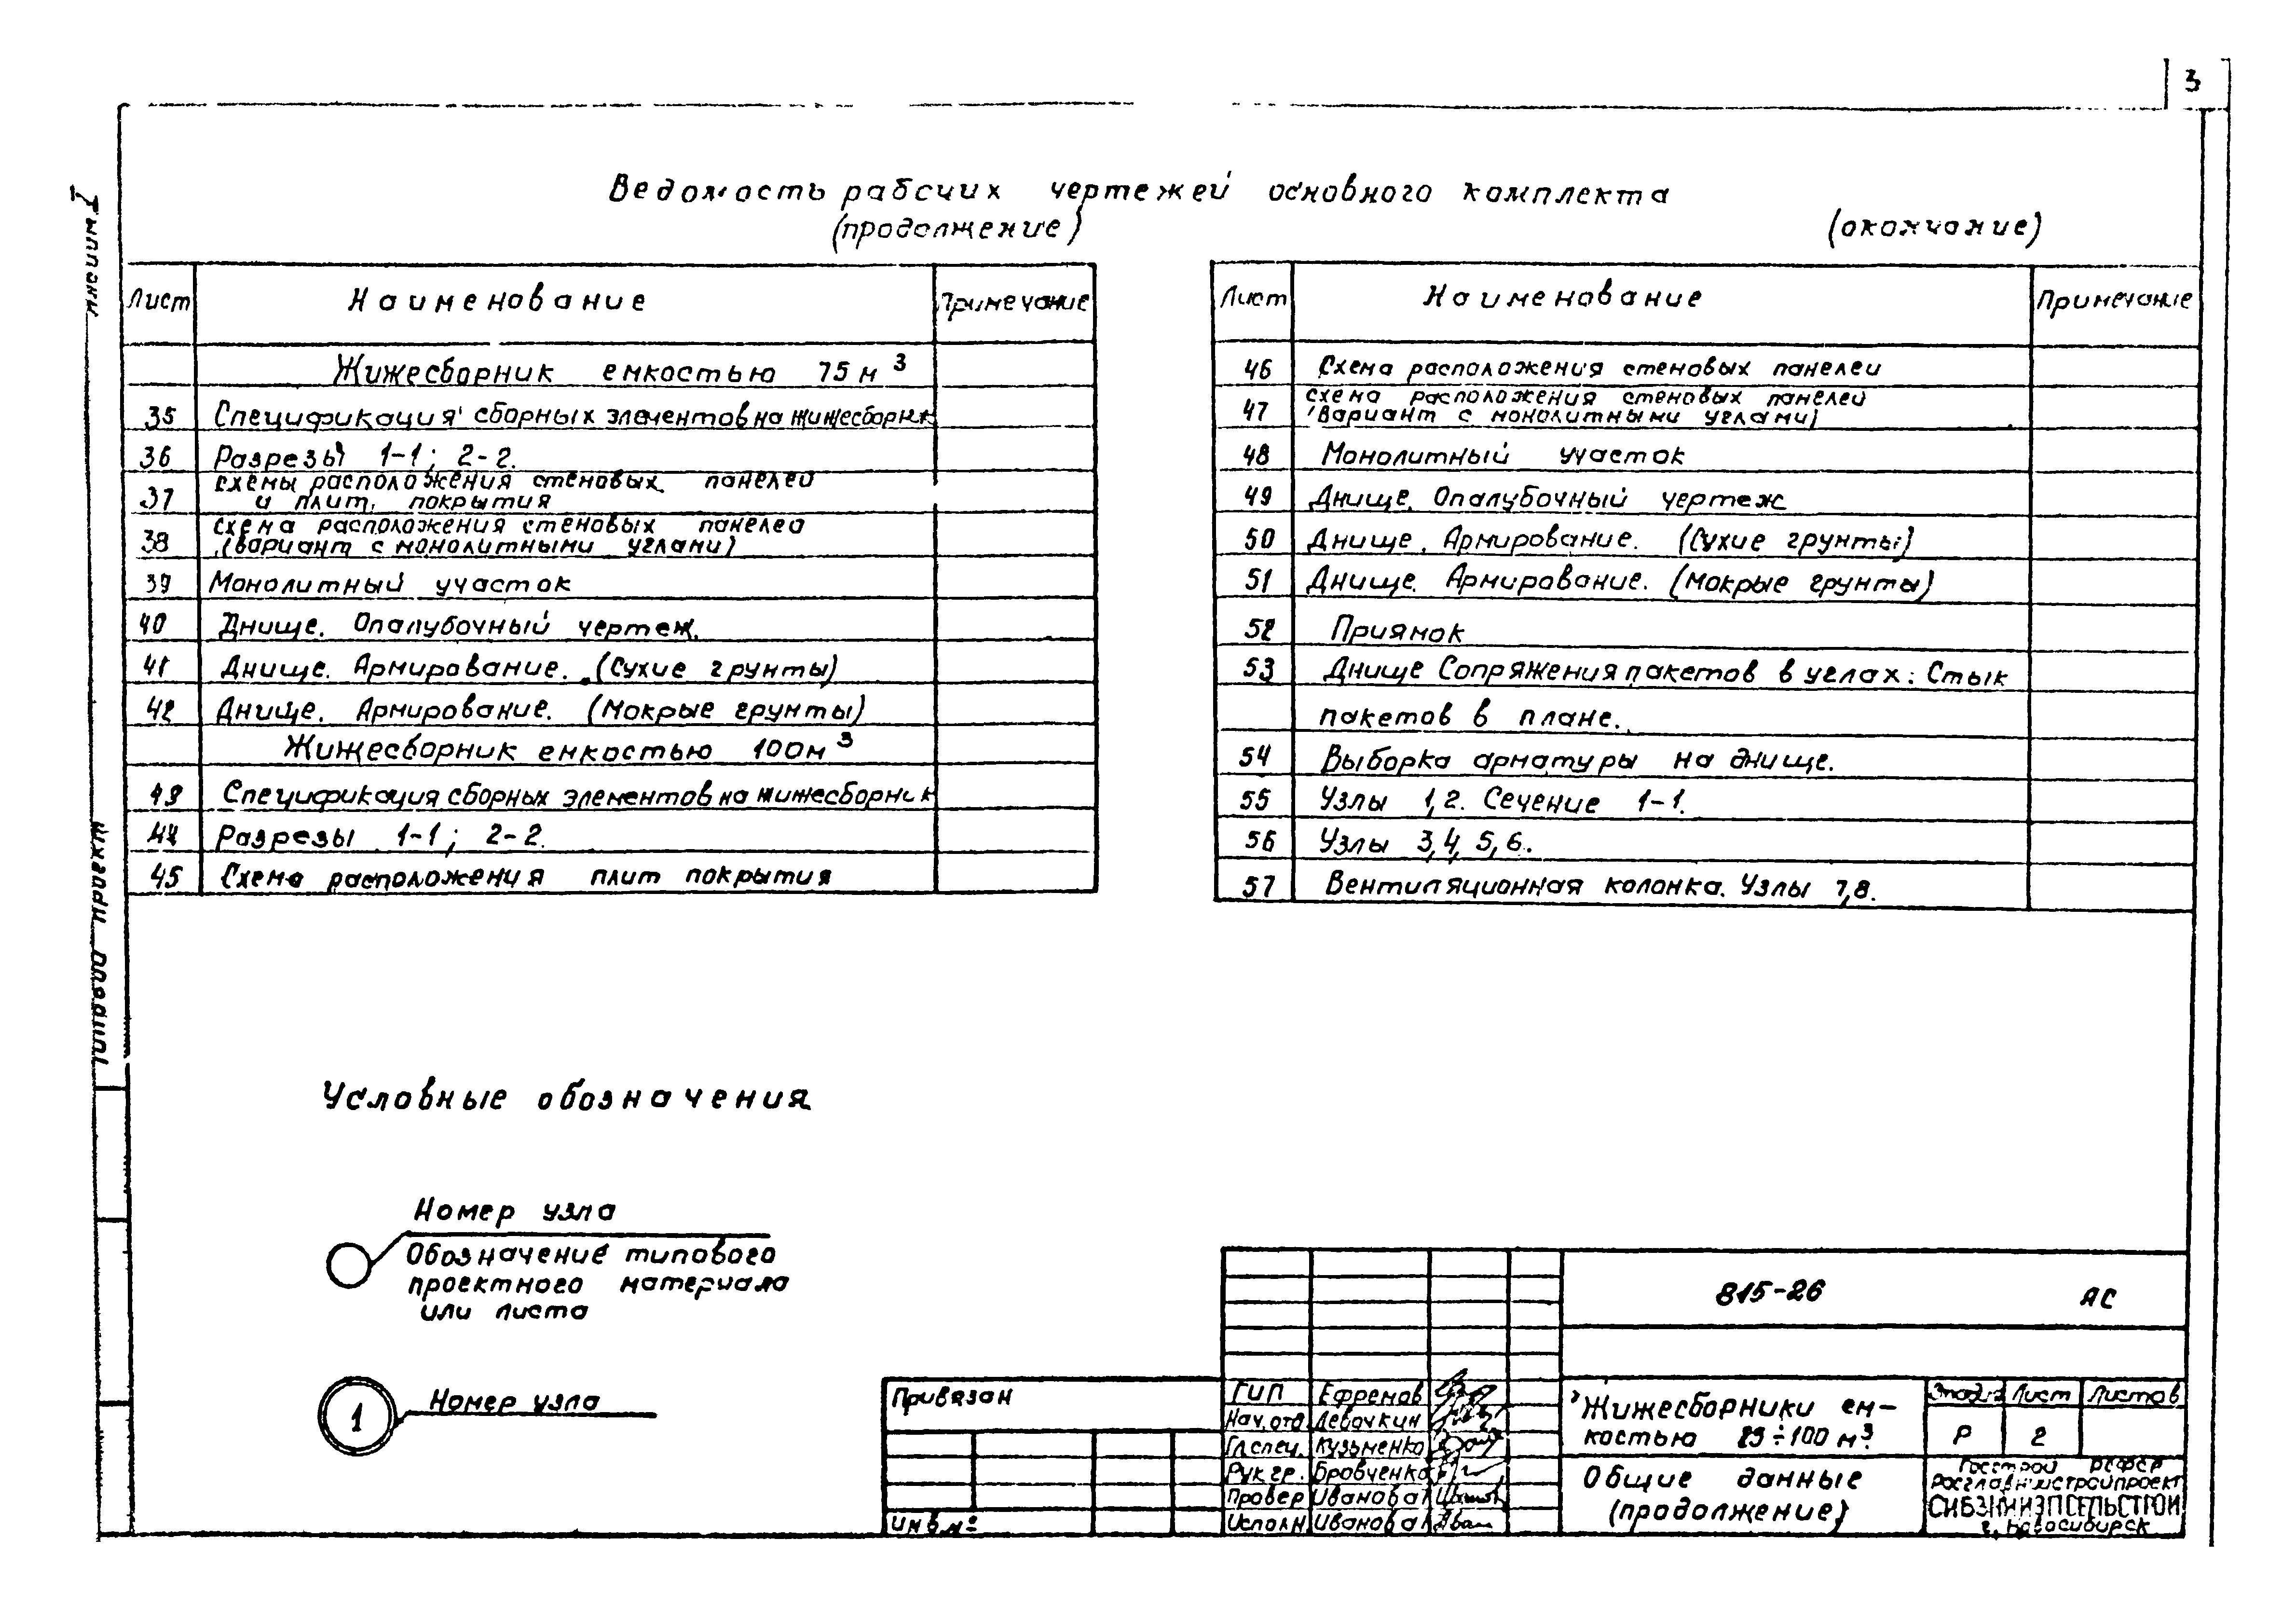 3
Ведомость рабочих чертежей основного комплекта
(продолжение)
(окончание)
Лист Наименование Примечание
Жижесборник емкостью 75 м³
35 Спецификация сборных элементов на жижесборник
36 Разрезы 1-1; 2-2.
37 Схемы расположения стеновых панелей
и плит покрытия
38 Схема расположения стеновых панелей
(вариант с монолитными углами)
39 Монолитный участок
40 Днище. Опалубочный чертеж.
41 Днище. Армирование. (Сухие грунты)
42 Днище. Армирование. (Мокрые грунты)
Жижесборник емкостью 100м³
43 Спецификация сборных элементов на жижесборник
44 Разрезы 1-1; 2-2.
45 Схема расположения плит покрытия
Лист Наименование Примечание
46 Схема расположения стеновых панелей
47 Схема расположения стеновых панелей
(Вариант с монолитными углами)
48 Монолитный участок
49 Днище. Опалубочный чертеж
50 Днище. Армирование. (Сухие грунты)
51 Днище. Армирование. (Мокрые грунты)
52 Приямок
53 Днище Сопряжения пакетов в углах. Стык
пакетов в плане.
54 Выборка арматуры на днище.
55 Узлы 1,2. Сечение 1-1.
56 Узлы 3,4,5,6.
57 Вентиляционная колонка. Узлы 7,8.
Условные обозначения
Номер узла
Обозначение типового
проектного материала
или листа
1 Номер узла
Привязан
Инв.№
815-26 АС
ГИП Ефремов
Нач.отд. Левочкин
Гл.спец. Кузьменко
Рук.гр. Бровченко
Провер Иванова
Исполн Иванова
Жижесборники ем-
костью 25÷100 м³.
Стадия Лист Листов
Р 2
Общие данные
(продолжение)
Госстрой РСФСР
Росглавнистройпроект
СИБЗНИИЭПСЕЛЬСТРОЙ
г. Новосибирск